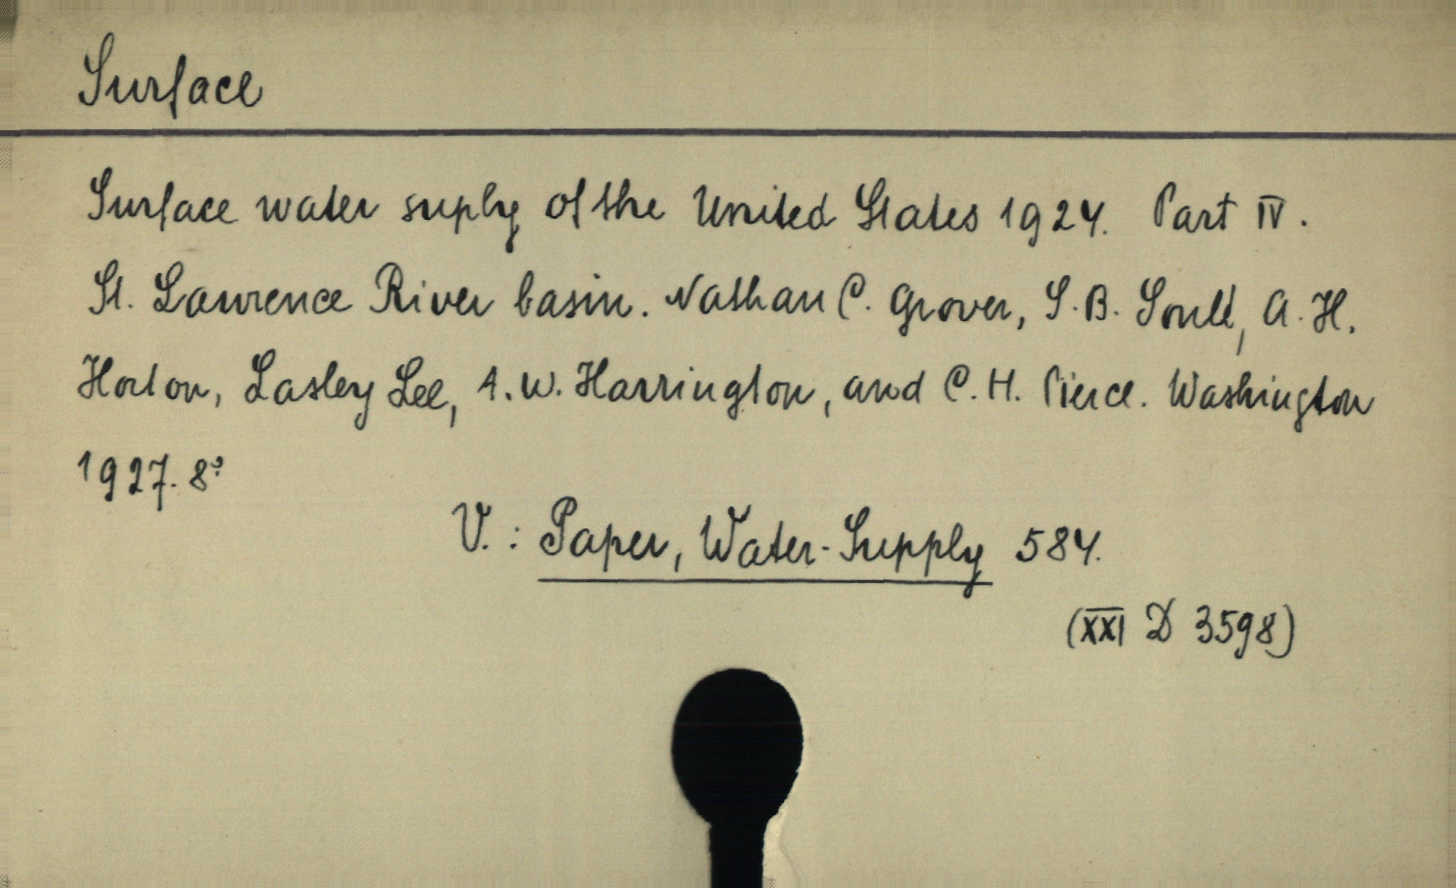 Surface
Surface water suply of the United States 1924. Part IV.
St. Lawrence River basin. Nathan C. Grover, S.B. Soulé, A.H.
Horton, Lasley Lee, A.W. Harrington, and C.H. Pierce. Washington
1927. 8°
V.: Paper, Water-Supply 584.
(XXI D 3598)